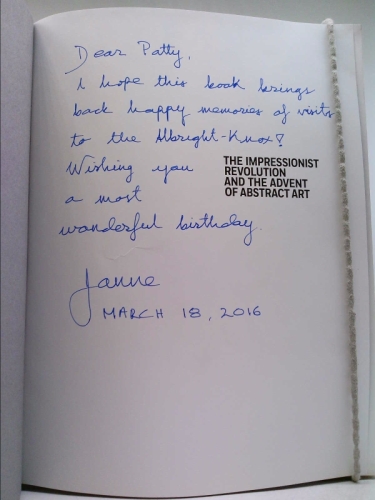 Dear Patty,
I hope this book brings
back happy memories of visits
to the Albright-Knox!
Wishing you
a most
wonderful birthday.
THE IMPRESSIONIST
REVOLUTION
AND THE ADVENT
OF ABSTRACT ART
Janne
MARCH 18, 2016